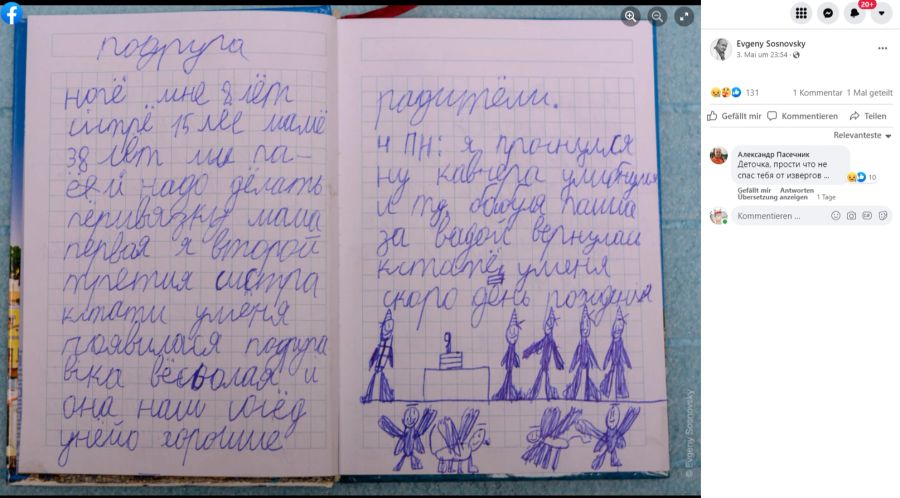 подруга
ногё мне 8 лёт
систрё 15 лес мамё
38 лет
надо дёлать
пёривязку мама
первая я второй
третия систра
кстати умёня
появилася подруга
вика вёсёолая и
она наш сосёд
унёйо хорошие
радитёли.
4 ПН: я праснулся
ну кавчера улибнулся
и бабуля пашла
за вадой вернулас
кстатё уменя
скоро день рождения
9
© Evgeny Sosnovsky
20+
Evgeny Sosnovsky
3. Mai um 23:54
131
1 Kommentar 1 Mal geteilt
Gefällt mir Kommentieren Teilen
Relevanteste
Александр Пасечник
Деточка, прости что не
спас тебя от извергов ...
10
Gefällt mir Antworten
Übersetzung anzeigen 1 Tage
Kommentieren ...
GIF